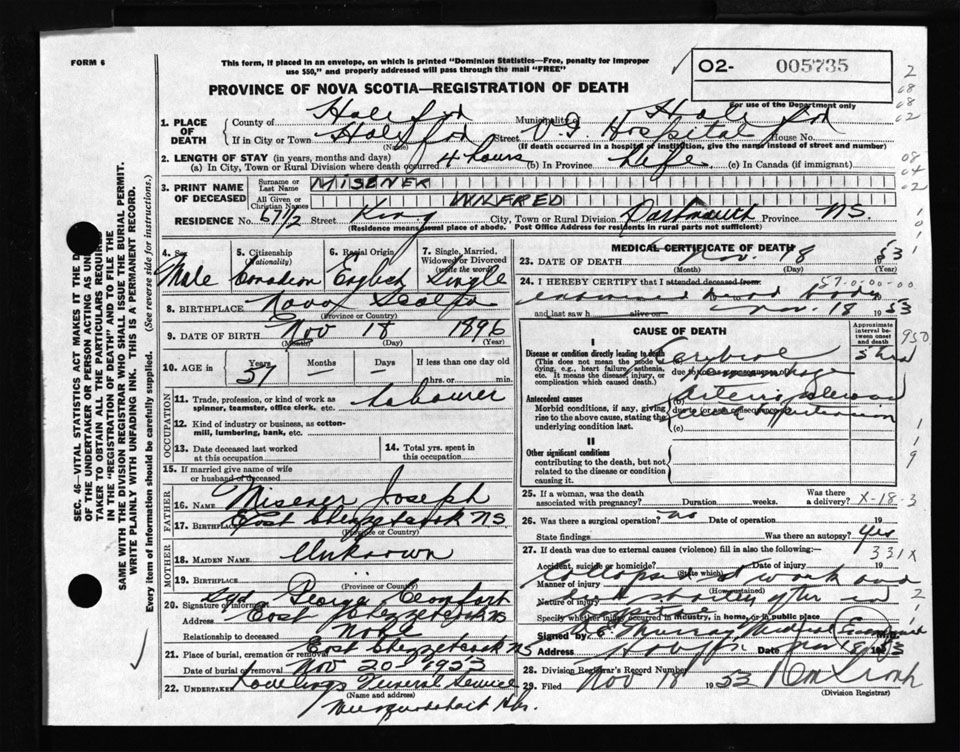 FORM 6
This form, if placed in an envelope, on which is printed "Dominion Statistics—Free, penalty for improper
use $50," and properly addressed will pass through the mail "FREE"
PROVINCE OF NOVA SCOTIA—REGISTRATION OF DEATH
02- 005735
For use of the Department only
1. PLACE OF DEATH
County of Halifax Municipality Halifax
If in City or Town Halifax Street V.G. Hospital House No.
(Name) (If death occurred in a hospital or institution, give the name instead of street and number)
2. LENGTH OF STAY (in years, months and days)
(a) In City, Town or Rural Division where death occurred 4 hours (b) In Province Life (c) In Canada (if immigrant)
3. PRINT NAME OF DECEASED
Surname or Last Name MISENER
All Given or Christian Names WILFRED
RESIDENCE No. 67 1/2 Street King City, Town or Rural Division Dartmouth Province NS.
(Residence means usual place of abode. Post Office Address for residents in rural parts not sufficient)
4. Sex Male
5. Citizenship (Nationality) Canadian
6. Racial Origin English
7. Single, Married, Widowed or Divorced (write the word) Single
8. BIRTHPLACE Nova Scotia
(Province or Country)
9. DATE OF BIRTH Nov 18 1896
(Month) (Day) (Year)
10. AGE in Years 57 Months Days If less than one day old
hrs. or min.
OCCUPATION
11. Trade, profession, or kind of work as
spinner, teamster, office clerk, etc. Labourer
12. Kind of industry or business, as cotton-
mill, lumbering, bank, etc.
13. Date deceased last worked
at this occupation
14. Total yrs. spent
in this occupation
15. If married give name of wife
or husband of deceased
FATHER
16. NAME Misener Joseph
17. BIRTHPLACE East Chezzetcook NS
(Province or Country)
MOTHER
18. MAIDEN NAME Unknown
19. BIRTHPLACE
(Province or Country)
20. Signature of informant Sgd George
Address East Chezzetcook NS
Relationship to deceased None
21. Place of burial, cremation or removal East Chezzetcook NS
Date of burial or removal Nov 20 1953
22. UNDERTAKER Funeral Service
(Name and address)
Musquodoboit Hbr.
MEDICAL CERTIFICATE OF DEATH
23. DATE OF DEATH Nov. 18 1953
(Month) (Day) (Year)
24. I HEREBY CERTIFY that I attended deceased from:
57-0-00-00
examined dead body
and last saw h alive on Nov. 18 1953
CAUSE OF DEATH
Approximate interval between onset and death
I
Disease or condition directly leading to death
(This does not mean the mode of
dying, e.g., heart failure, asthenia,
etc. It means the disease, injury, or
complication which caused death.)
Cerebral
due to (or as a consequence of)
hemorrhage
Antecedent causes
Morbid conditions, if any, giving
rise to the above cause, stating the
underlying condition last.
Arterio
due to (or as a consequence of)
hypertension
(c)
II
Other significant conditions
contributing to the death, but not
related to the disease or condition
causing it.
25. If a woman, was the death
associated with pregnancy? Duration weeks. Was there
a delivery? X-18-3
26. Was there a surgical operation? no Date of operation 19
State findings Was there an autopsy? Yes
27. If death was due to external causes (violence) fill in also the following:— 331X
Accident, suicide or homicide? Date of injury 19
(State which)
Manner of injury Collapsed at work and
(How sustained)
Nature of injury died shortly after in
Specify whether injury occurred in industry, in home, or in public place
hospital
Signed by Murray Medical Examiner
Address Halifax Date Nov 18 1953
28. Division Registrar's Record Number
29. Filed Nov 18 1953
(Division Registrar)
SEC. 46—VITAL STATISTICS ACT MAKES IT THE D
OF THE UNDERTAKER OR PERSON ACTING AS UN
TAKER TO OBTAIN ALL THE PARTICULARS REQUIR
IN THE "REGISTRATION OF DEATH" AND TO FILE THE
SAME WITH THE DIVISION REGISTRAR WHO SHALL ISSUE THE BURIAL PERMIT.
WRITE PLAINLY WITH UNFADING INK. THIS IS A PERMANENT RECORD.
Every item of information should be carefully supplied. (See reverse side for instructions.)